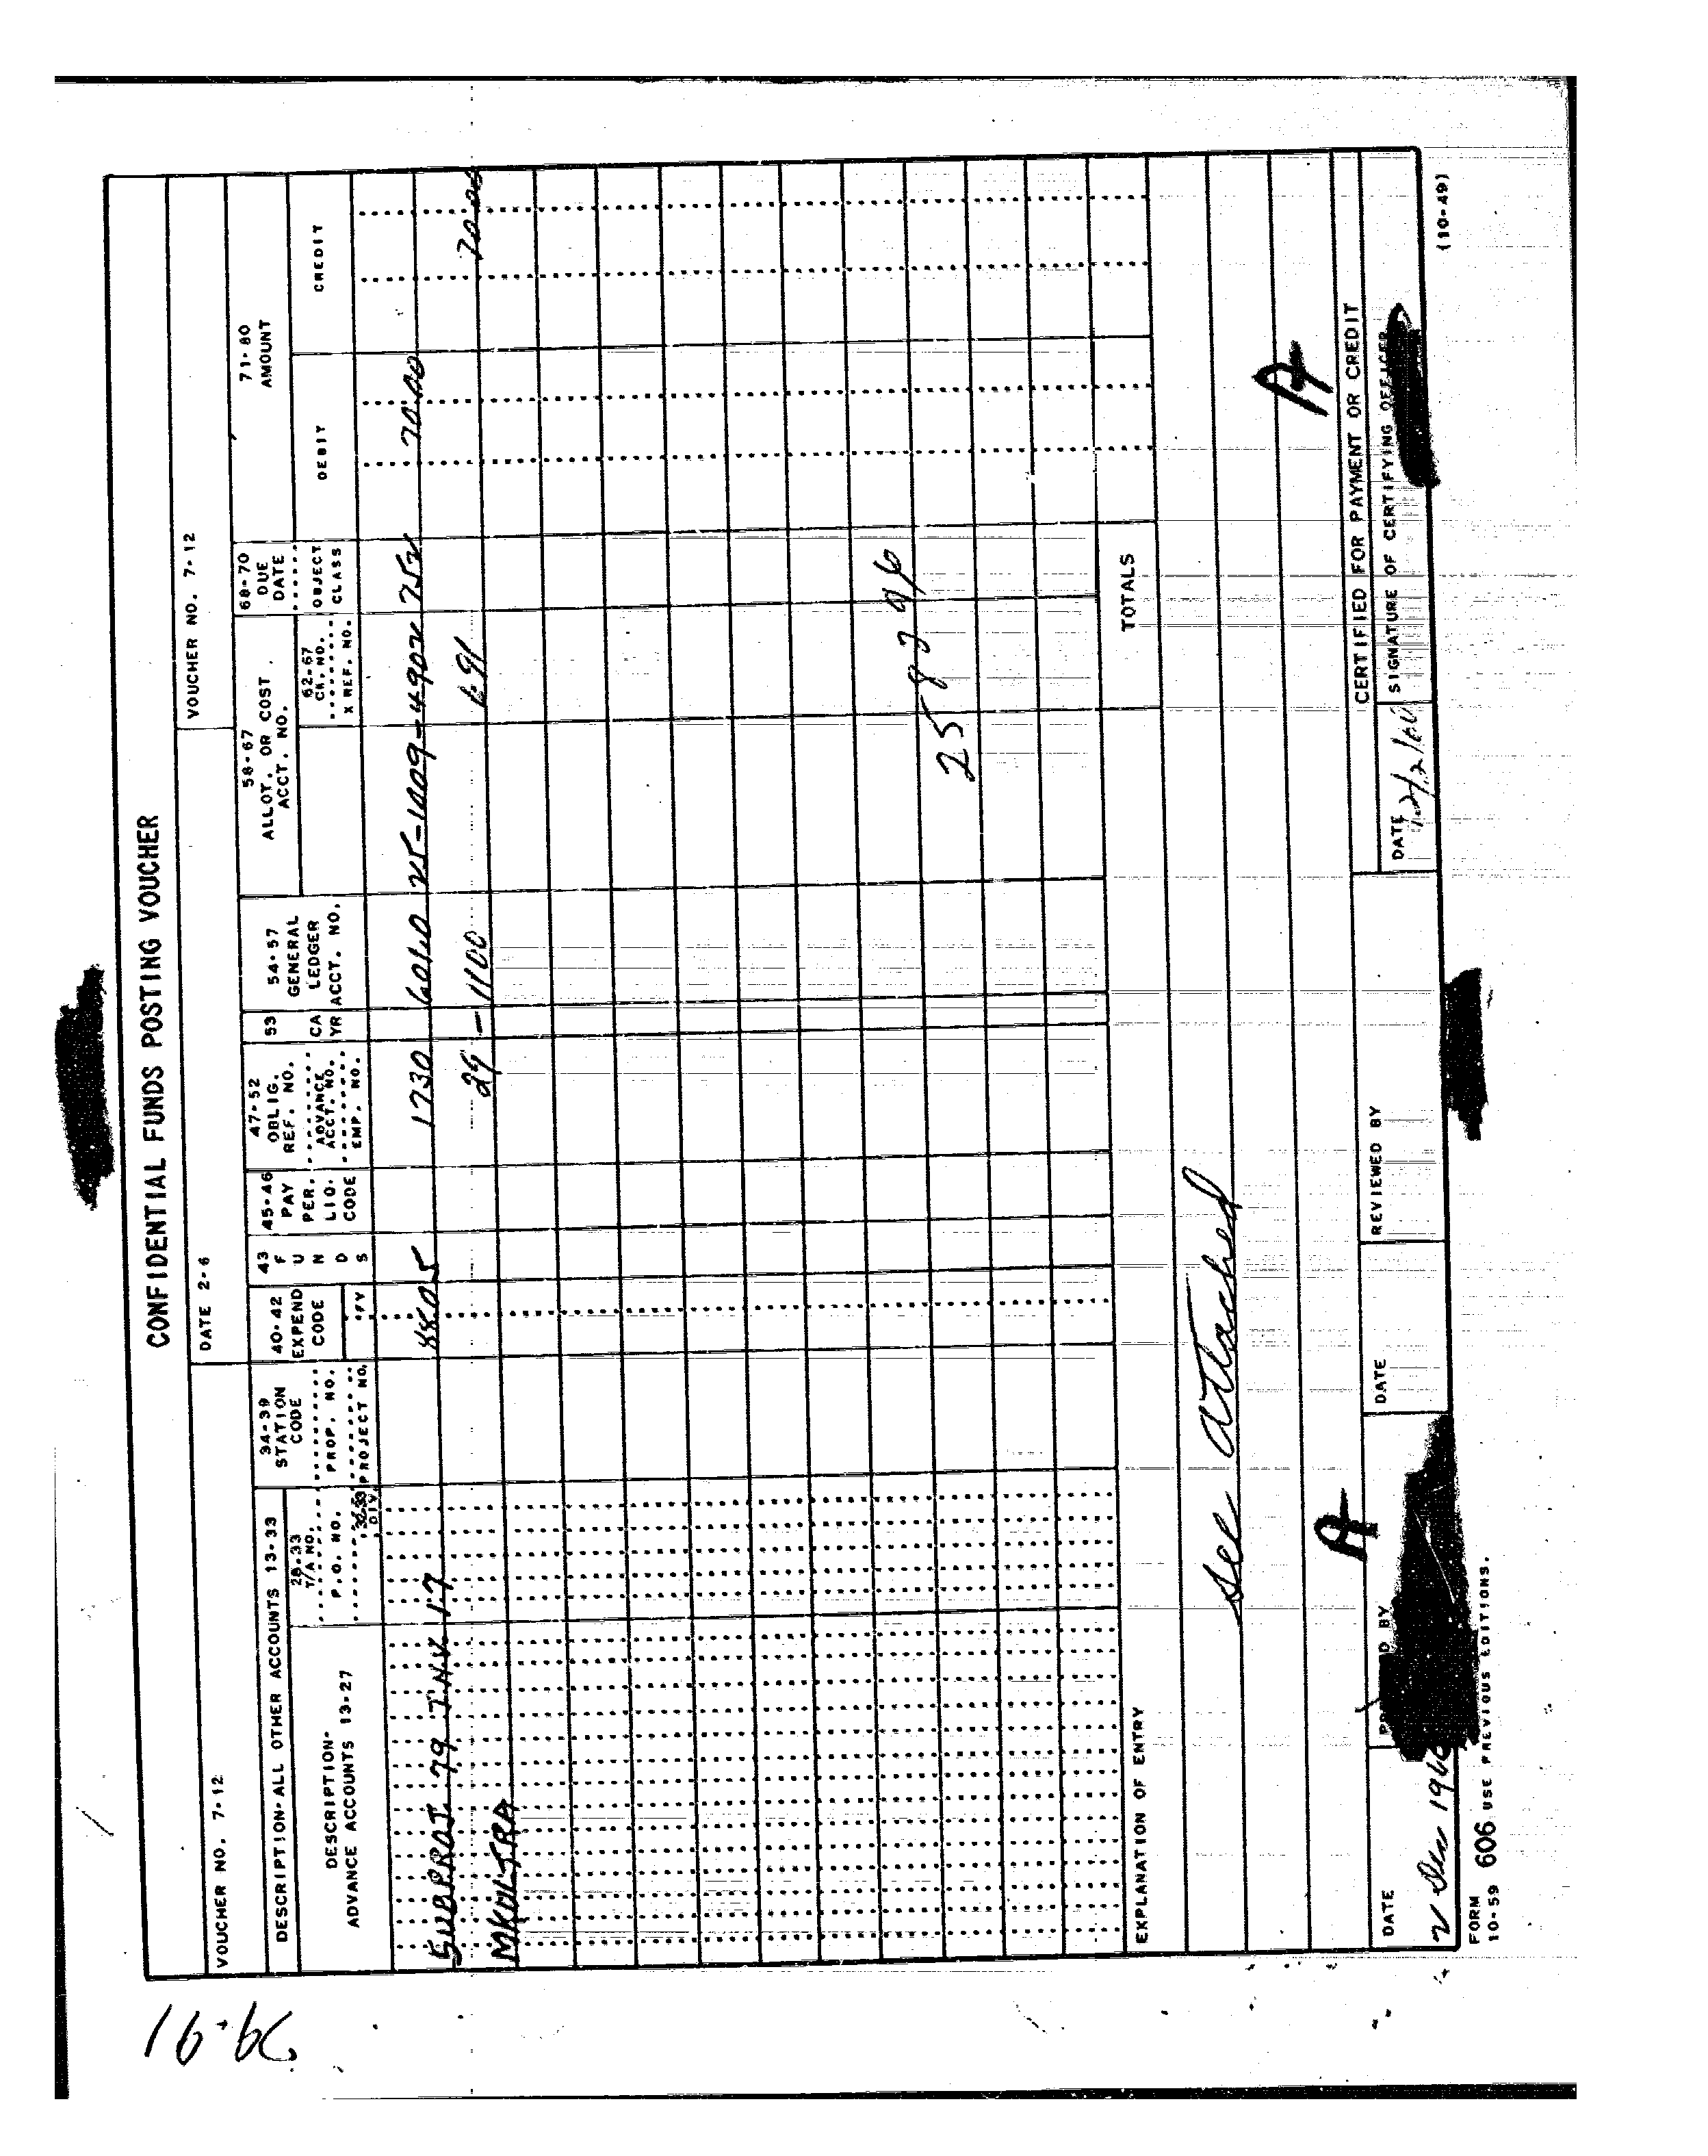 79-91
CONFIDENTIAL FUNDS POSTING VOUCHER
VOUCHER NO. 7-12
DATE 2-6
VOUCHER NO. 7-12
DESCRIPTION-ALL OTHER ACCOUNTS 13-33
DESCRIPTION-
ADVANCE ACCOUNTS 13-27
28-33
T/A NO.
P.O. NO.
DIV.
34-39
STATION
CODE
PROP. NO.
PROJECT NO.
40-42
EXPEND
CODE
FY
43
F
U
N
D
S
45-46
PAY
PER.
LIQ.
CODE
47-52
OBLIG.
REF. NO.
ADVANCE
ACCT. NO.
EMP. NO.
53
CA
YR
54-57
GENERAL
LEDGER
ACCT. NO.
58-67
ALLOT. OR COST
ACCT. NO.
62-67
CK. NO.
X REF. NO.
68-70
DUE
DATE
OBJECT
CLASS
71-80
AMOUNT
DEBIT
CREDIT
SUBPROJ 79 INV 17 1730 25-1009-4902 7000
MKULTRA 29 - 1100 691 7000
TOTALS
EXPLANATION OF ENTRY
See attached
A
A
CERTIFIED FOR PAYMENT OR CREDIT
DATE
BY
DATE
REVIEWED BY
DATE
SIGNATURE OF CERTIFYING OFFICER
2 Dec
FORM
10-59 606 USE PREVIOUS EDITIONS.
(10-49)